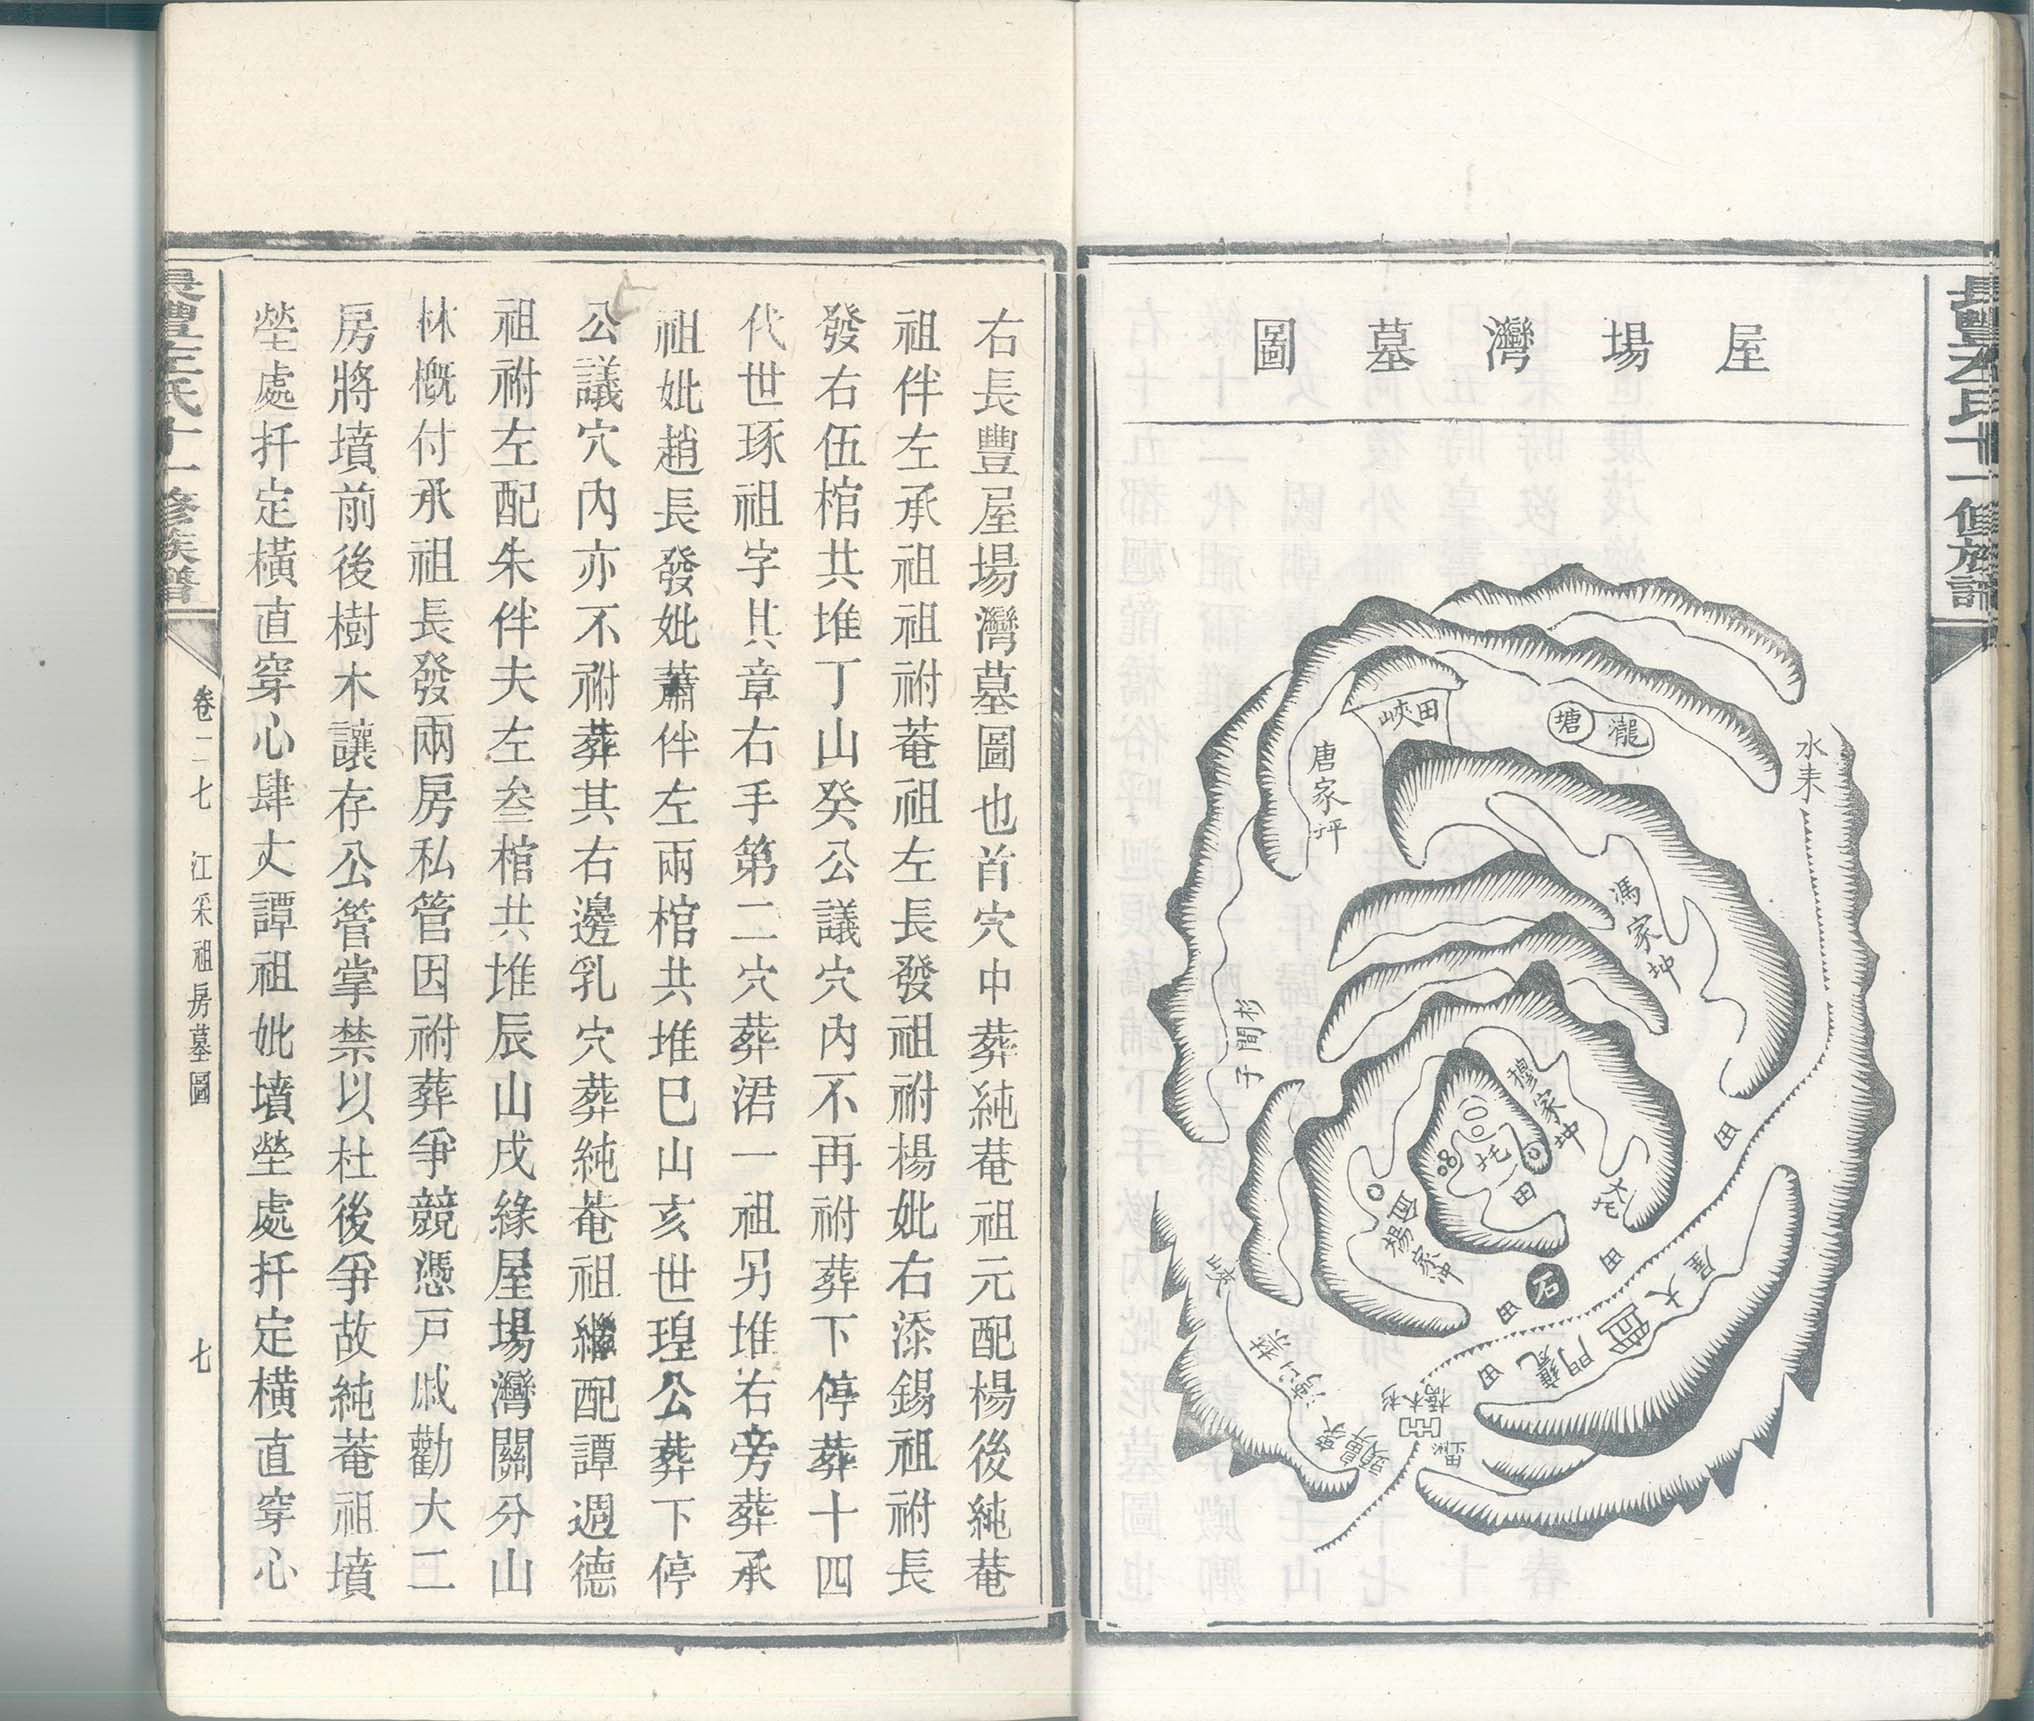 長豐左氏十一修族譜
屋場灣墓圖
水来
瀧
塘
田
峽
唐家坪
馮家坤
杉間子
穆家坤
坨
田
大坨
田
楊家冲
田
石
田
屋大
門
田
杉木橋
峽
右長豐屋場灣墓圖也首穴中葬純菴祖元配楊後純菴
祖伴左承祖祖祔菴祖左長發祖祔楊妣右添錫祖祔長
發右伍棺共堆丁山癸公議穴内不再祔葬下停葬十四
代世琢祖字其章右手第二穴葬涒一祖另堆右旁葬承
祖妣趙長發妣蕭伴左兩棺共堆巳山亥世瑝公葬下停
公議穴内亦不祔葬其右邊乳穴葬純菴祖繼配譚週德
祖祔左配朱伴夫左叄棺共堆辰山戌緣屋場灣關分山
林概付承祖長發兩房私管因祔葬爭競憑戸戚勸大二
房將墳前後樹木讓存公管掌禁以杜後爭故純菴祖墳
塋處扦定橫直穿心肆丈譚祖妣墳塋處扦定橫直穿心
長豐左氏十一修族譜
卷二七
江采祖房墓圖
七